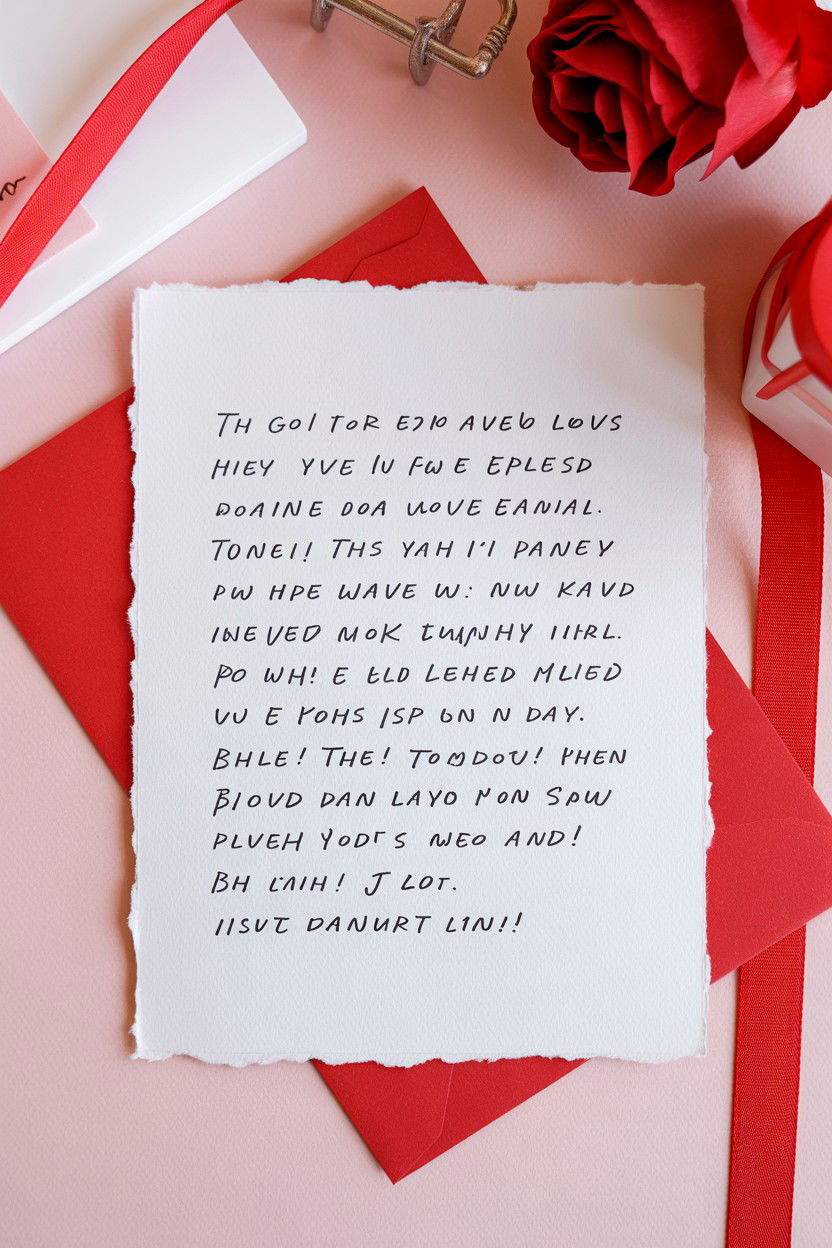 TH GOI TOR AVEB LOVS
HIEY YVE IU FW E EPLESD
DOAINE DOA UOVE EANIAL.
TONEI! THS YAH I'I PANEY
PW HPE WAVE W: NW KAVD
INEVED MOK IIHRL.
PO WH! E LEHED MLIED
VU E YOHS ISP N DAY.
BHLE! THE! PHEN
BIOVD DAN LAYO MON SPW
PLVEH NEO AND!
BH J LOT.
IISVT DANURT LIN!!